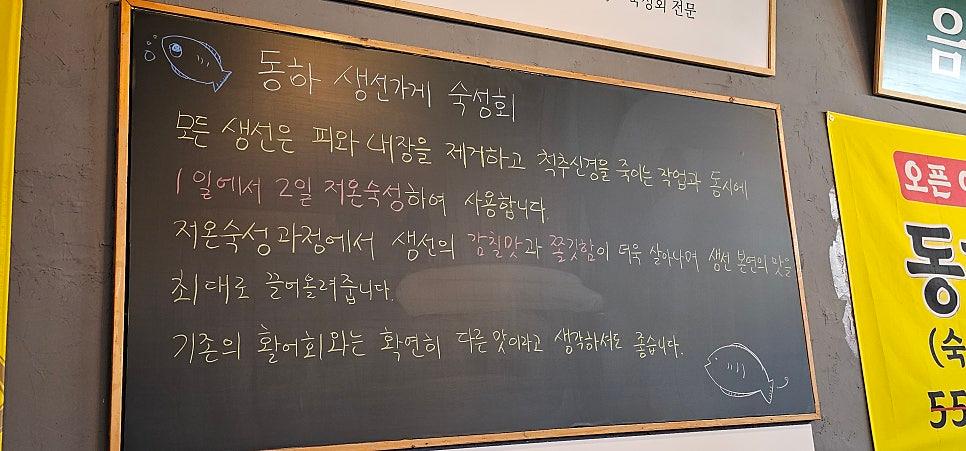 숙성회 전문
음
동하 생선가게 숙성회
모든 생선은 피와 내장을 제거하고 척추신경을 죽이는 작업과 동시에
1일에서 2일 저온숙성하여 사용합니다.
저온숙성 과정에서 생선의 감칠맛과 쫄깃함이 더욱 살아나며 생선 본연의 맛을
최대로 끌어올려줍니다.
기존의 활어회와는 확연히 다른 맛이라고 생각하셔도 좋습니다.
오픈
동
(숙
55